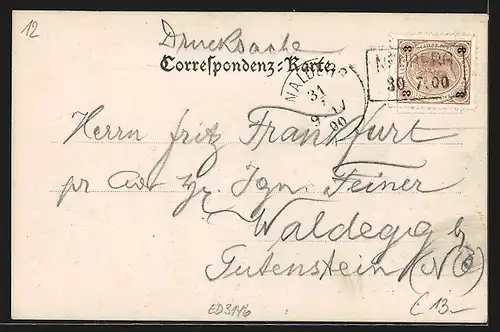 12
Drucksache
Correspondenz-Karte.
3 3
3 3
30 7.00
31
9
00
Herrn Fritz Frankfurt
pr Adr Ign. Feiner
Waldegg b/
Gutenstein (NÖ)
ED3146
€ 13-